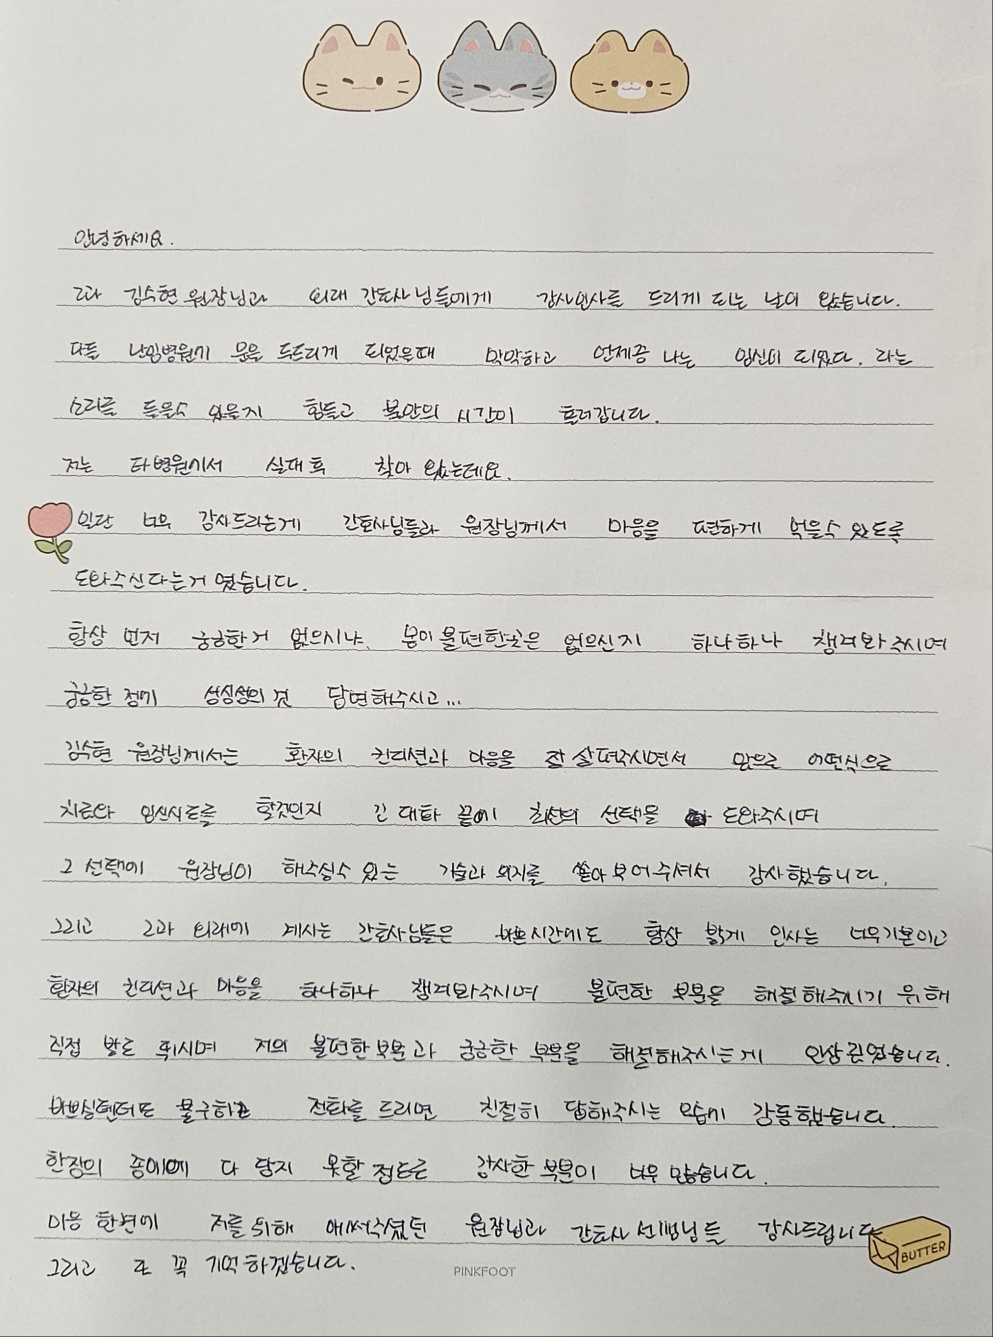 안녕하세요.
2과 김수현 원장님과 외래 간호사님들에게 감사인사를 드리게 되는 날이 왔습니다.
다들 난임병원에 문을 두드리게 되었을때 막막하고 언제쯤 나는 임신이 되었다. 라는
소리를 들을수 있을지 힘들고 불안의 시간이 흘러갑니다.
저는 타병원에서 실패 후 찾아 왔는데요.
일단 너무 감사드리는게 간호사님들과 원장님께서 마음을 편하게 먹을수 있도록
도와주신다는거 였습니다.
항상 먼저 궁금한거 없으시냐, 몸이 불편한곳은 없으신지 하나하나 챙겨봐주시며
궁금한 점에 성심성의 것 답변해주시고...
김수현 원장님께서는 환자의 컨디션과 마음을 잘 살펴주시면서 앞으로 어떤식으로
치료와 임신시도를 할것인지 긴 대화 끝에 최선의 선택을 도와주시며
그 선택에 원장님이 하수실수 있는 기술과 의지를 쏟아 부어주셔서 감사했습니다.
그리고 2과 외래에 계시는 간호사님들은 바쁜시간에도 항상 밝게 인사는 너무기본이고
환자의 컨디션과 마음을 하나하나 챙겨봐주시며 불편한 부분을 해결해주시기 위해
직접 발로 뛰시며 저의 불편한부분과 궁금한 부분을 해결해주시는게 인상깊었습니다.
바쁘실텐데도 불구하고 전화를 드리면 친절히 답해주시는 모습에 감동했습니다.
한장의 종이에 다 담지 못할 정도로 감사한 부분이 너무 많습니다.
마음 한편에 저를 위해 애써주셨던 원장님과 간호사 선생님들 감사드립니다
그리고 또 꼭 기억하겠습니다.
BUTTER
PINKFOOT